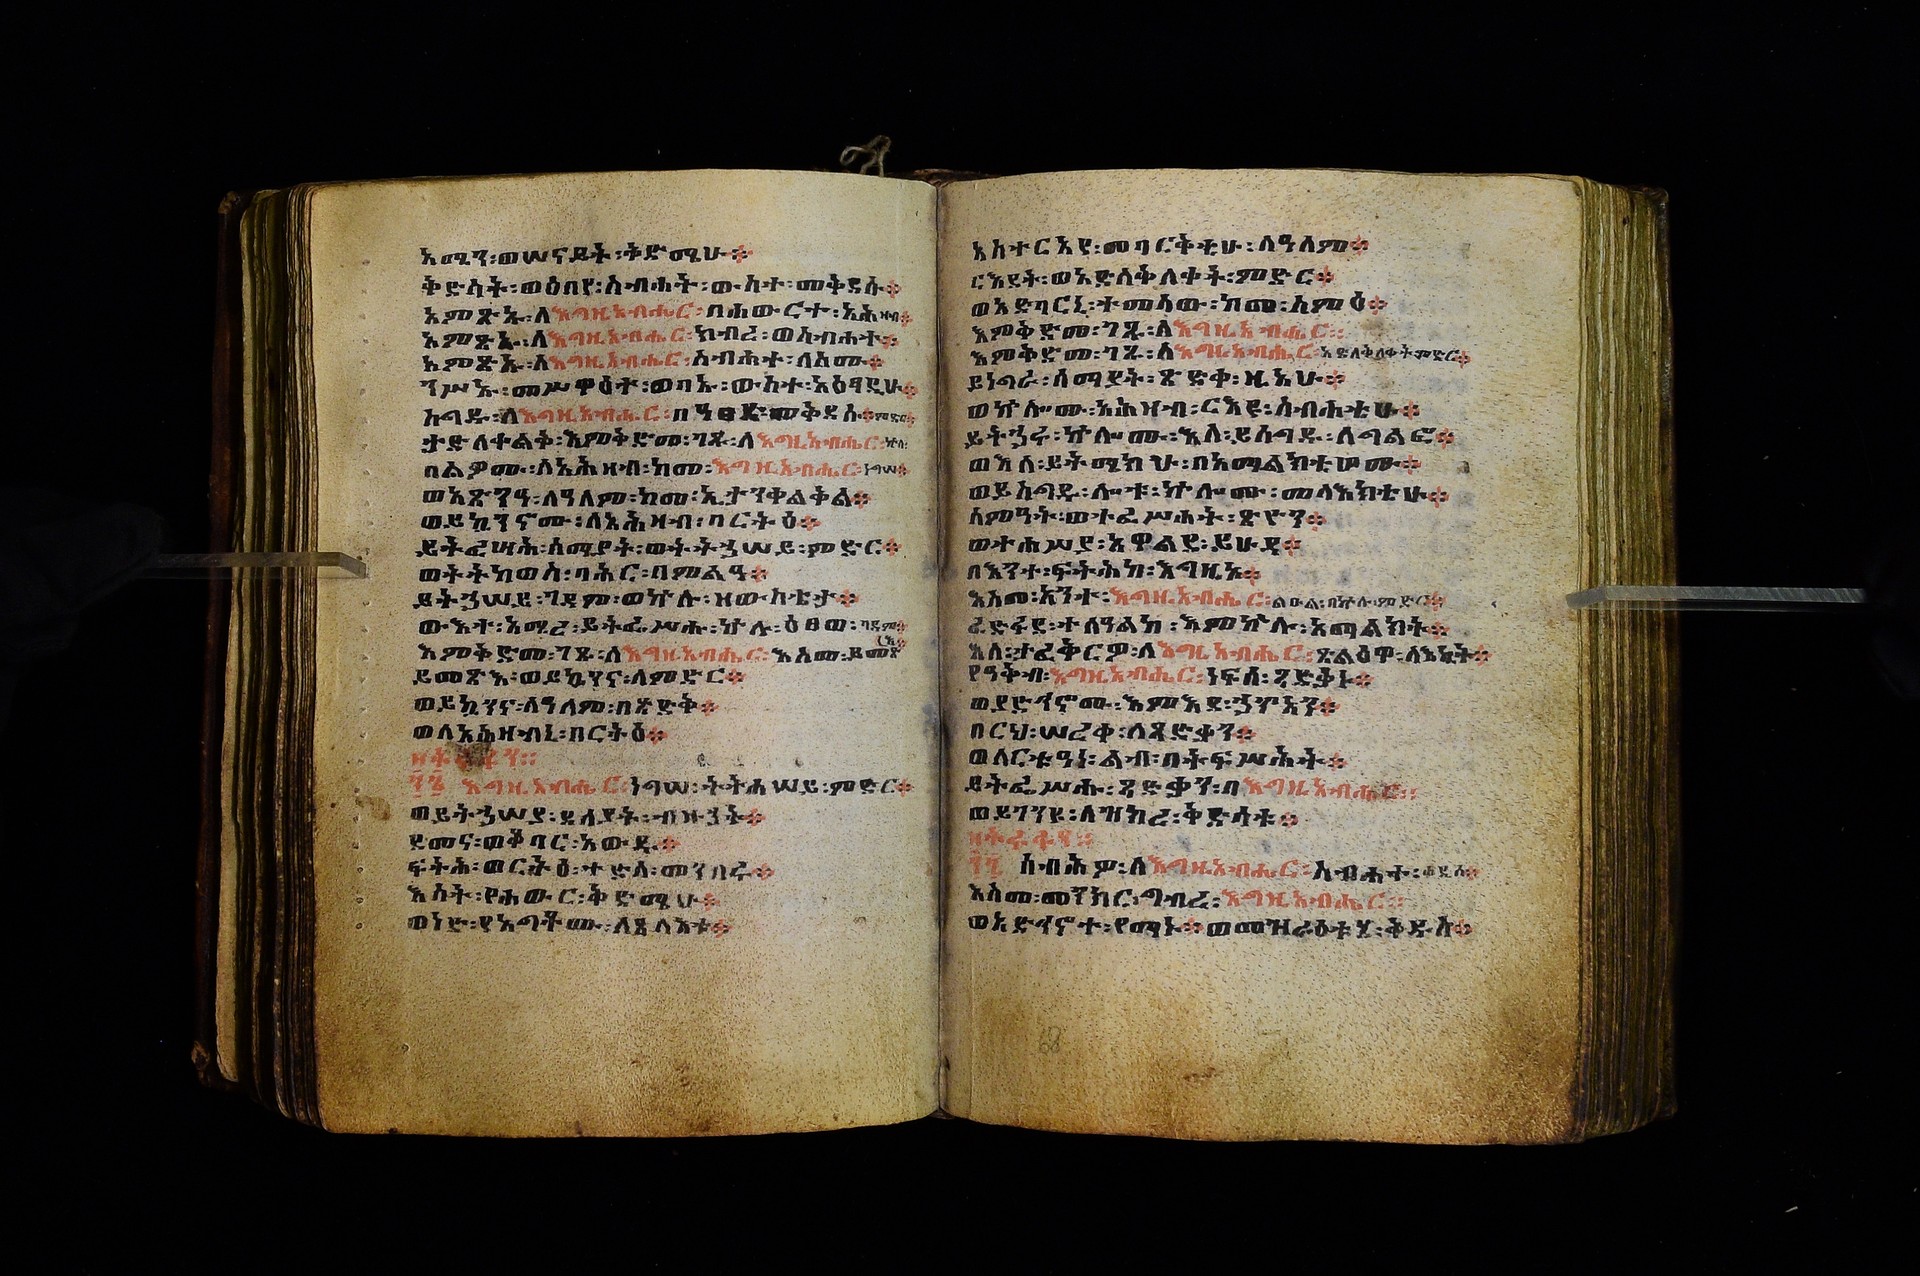 አሚን፡ወሠናይት፡ቅድሜሁ።
ቅድሳት፡ወዕበየ፡ስብሐት፡ውስተ፡መቅደሱ።
አምጽኡ፡ለእግዚአብሔር፡በሐውርተ፡አሕዛብ።
አምጽኡ፡ለእግዚአብሔር፡ክብረ፡ወስብሐተ።
አምጽኡ፡ለእግዚአብሔር፡ስብሐተ፡ለስሙ።
ንሥኡ፡መሥዋዕተ፡ወባኡ፡ውስተ፡አዕፃዲሁ።
ስግዱ፡ለእግዚአብሔር፡በዓፀደ፡መቅደሱ።
ታድለቀልቅ፡እምቅድመ፡ገጹ፡ለእግዚአብሔር፡ኵላ፡
በልዎሙ፡ለአሕዛብ፡ከመ፡እግዚአብሔር፡ነግሠ።
ወአጽንዓ፡ለዓለም፡ከመ፡ኢታንቀልቅል።
ወይኴንኖሙ፡ለአሕዛብ፡ባርትዕ።
ይትፌሣሕ፡ሰማያት፡ወትትኃሠይ፡ምድር።
ወትትከወስ፡ባሕር፡በምልዓ።
ይትኃሠይ፡ገዳም፡ወኵሉ፡ዘውስቴታ።
ውእተ፡አሚረ፡ይትፌሥሑ፡ኵሉ፡ዕፀወ፡ገዳም።
እምቅድመ፡ገጹ፡ለእግዚአብሔር፡እስመ፡ይመጽ(እ።
ይመጽእ፡ወይኴንና፡ለምድር።
ወይኴንና፡ለዓለም፡በጽድቅ።
ወለአሕዛብኒ፡በርትዕ።
፺፮ እግዚአብሔር፡ነግሠ፡ትትሐሠይ፡ምድር።
ወይትኃሠያ፡ደሰያት፡ብዙኃት።
ደመና፡ወቆባር፡አውዱ።
ፍትሕ፡ወርትዕ፡ተድላ፡መንበሩ።
እሳት፡የሐውር፡ቅድሜሁ።
ወነድ፡ያአግቶሙ፡ለጸላእቱ።
አስተርአየ፡መባርቅቲሁ፡ለዓለም።
ርእየት፡ወአድለቅለቀት፡ምድር።
ወአድባርኒ፡ተመሰው፡ከመ፡ሰምዕ።
እምቅድመ፡ገጹ፡ለእግዚአብሔር።
እምቅድመ፡ገጹ፡ለእግዚአብሔር፡አድለቅለቀት፡ምድር።
ይነግራ፡ሰማያት፡ጽድቀ፡ዚአሁ።
ወኵሎሙ፡አሕዛብ፡ርእዩ፡ስብሐቲሁ።
ይትኃፈሩ፡ኵሎሙ፡እለ፡ይሰግዱ፡ለግልፎ።
ወእለ፡ይትሜክሁ፡በአማልክቲሆሙ።
ወይሰግዱ፡ሎቱ፡ኵሎሙ፡መላእክቲሁ።
ሰምዓት፡ወተፈሥሐት፡ጽዮን።
ወተሐሥያ፡አዋልደ፡ይሁዳ።
በእንተ፡ፍትሕከ፡እግዚኦ።
እስመ፡አንተ፡እግዚአብሔር፡ልዑል፡በኵሉ፡ምድር።
ፈድፋደ፡ተለዓልከ፡እምኵሉ፡አማልክት።
እለ፡ታፈቅርዎ፡ለእግዚአብሔር፡ጽልዕዋ፡ለእኪት።
የዓቅብ፡እግዚአብሔር፡ነፍሰ፡ጻድቃኑ።
ወያድኅኖሙ፡እምእደ፡ኃጥኣን።
በርህ፡ሠረቀ፡ለጻድቃን።
ወለርቱዓነ፡ልብ፡በትፍሥሕት።
ይትፌሥሑ፡ጻድቃን፡በእግዚአብሔር።
ወይገንዩ፡ለዝክረ፡ቅድሳቱ።
፺፯ ሰብሕዎ፡ለእግዚአብሔር፡ስብሐተ፡ሐዲሰ።
እስመ፡መንክረ፡ገብረ፡እግዚአብሔር።
ወአድኅኖተ፡የማኑ።ወመዝራዕቱ፡ቅዱስ።
68